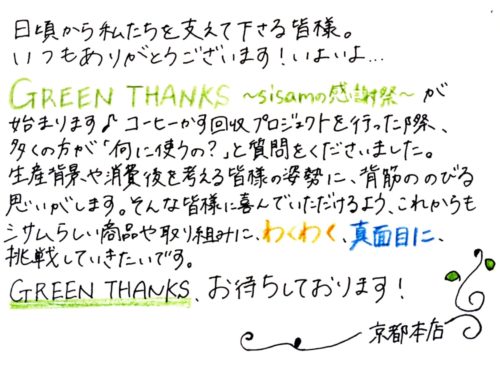 日頃から私たちを支えて下さる皆様。
いつもありがとうございます！いよいよ…
GREEN THANKS ～sisamの感謝祭～が
始まります♪ コーヒーかす回収プロジェクトを行った際、
多くの方が「何に使うの？」と質問をくださいました。
生産背景や消費後を考える皆様の姿勢に、背筋ののびる
思いがします。そんな皆様に喜んでいただけるよう、これからも
シサムらしい商品や取り組みに、わくわく、真面目に、
挑戦していきたいです。
GREEN THANKS、お待ちしております！
京都本店